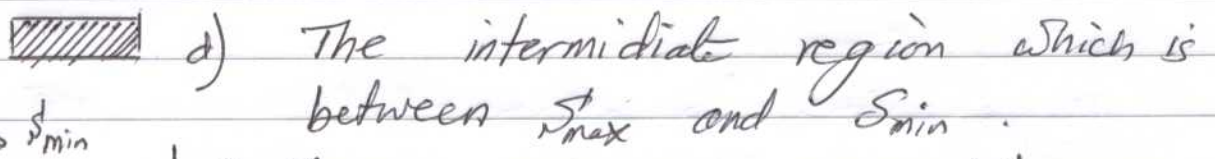 d) The intermidiate region which is
between Smax and Smin .
Smin